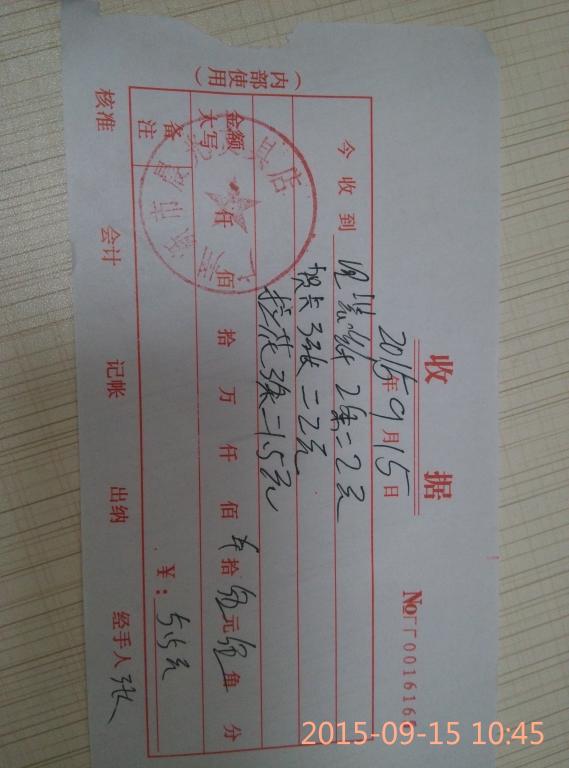 收据
No 001616
2015年9月15日
今收到
2条=2元
贺卡3张=2元
拉花3条=1.5元
金额大写 仟 佰 拾 万 仟 佰 拾 元 角 分
备注
¥: 5.5元
核准 会计 记帐 出纳 经手人 张
（内部使用）
2015-09-15 10:45